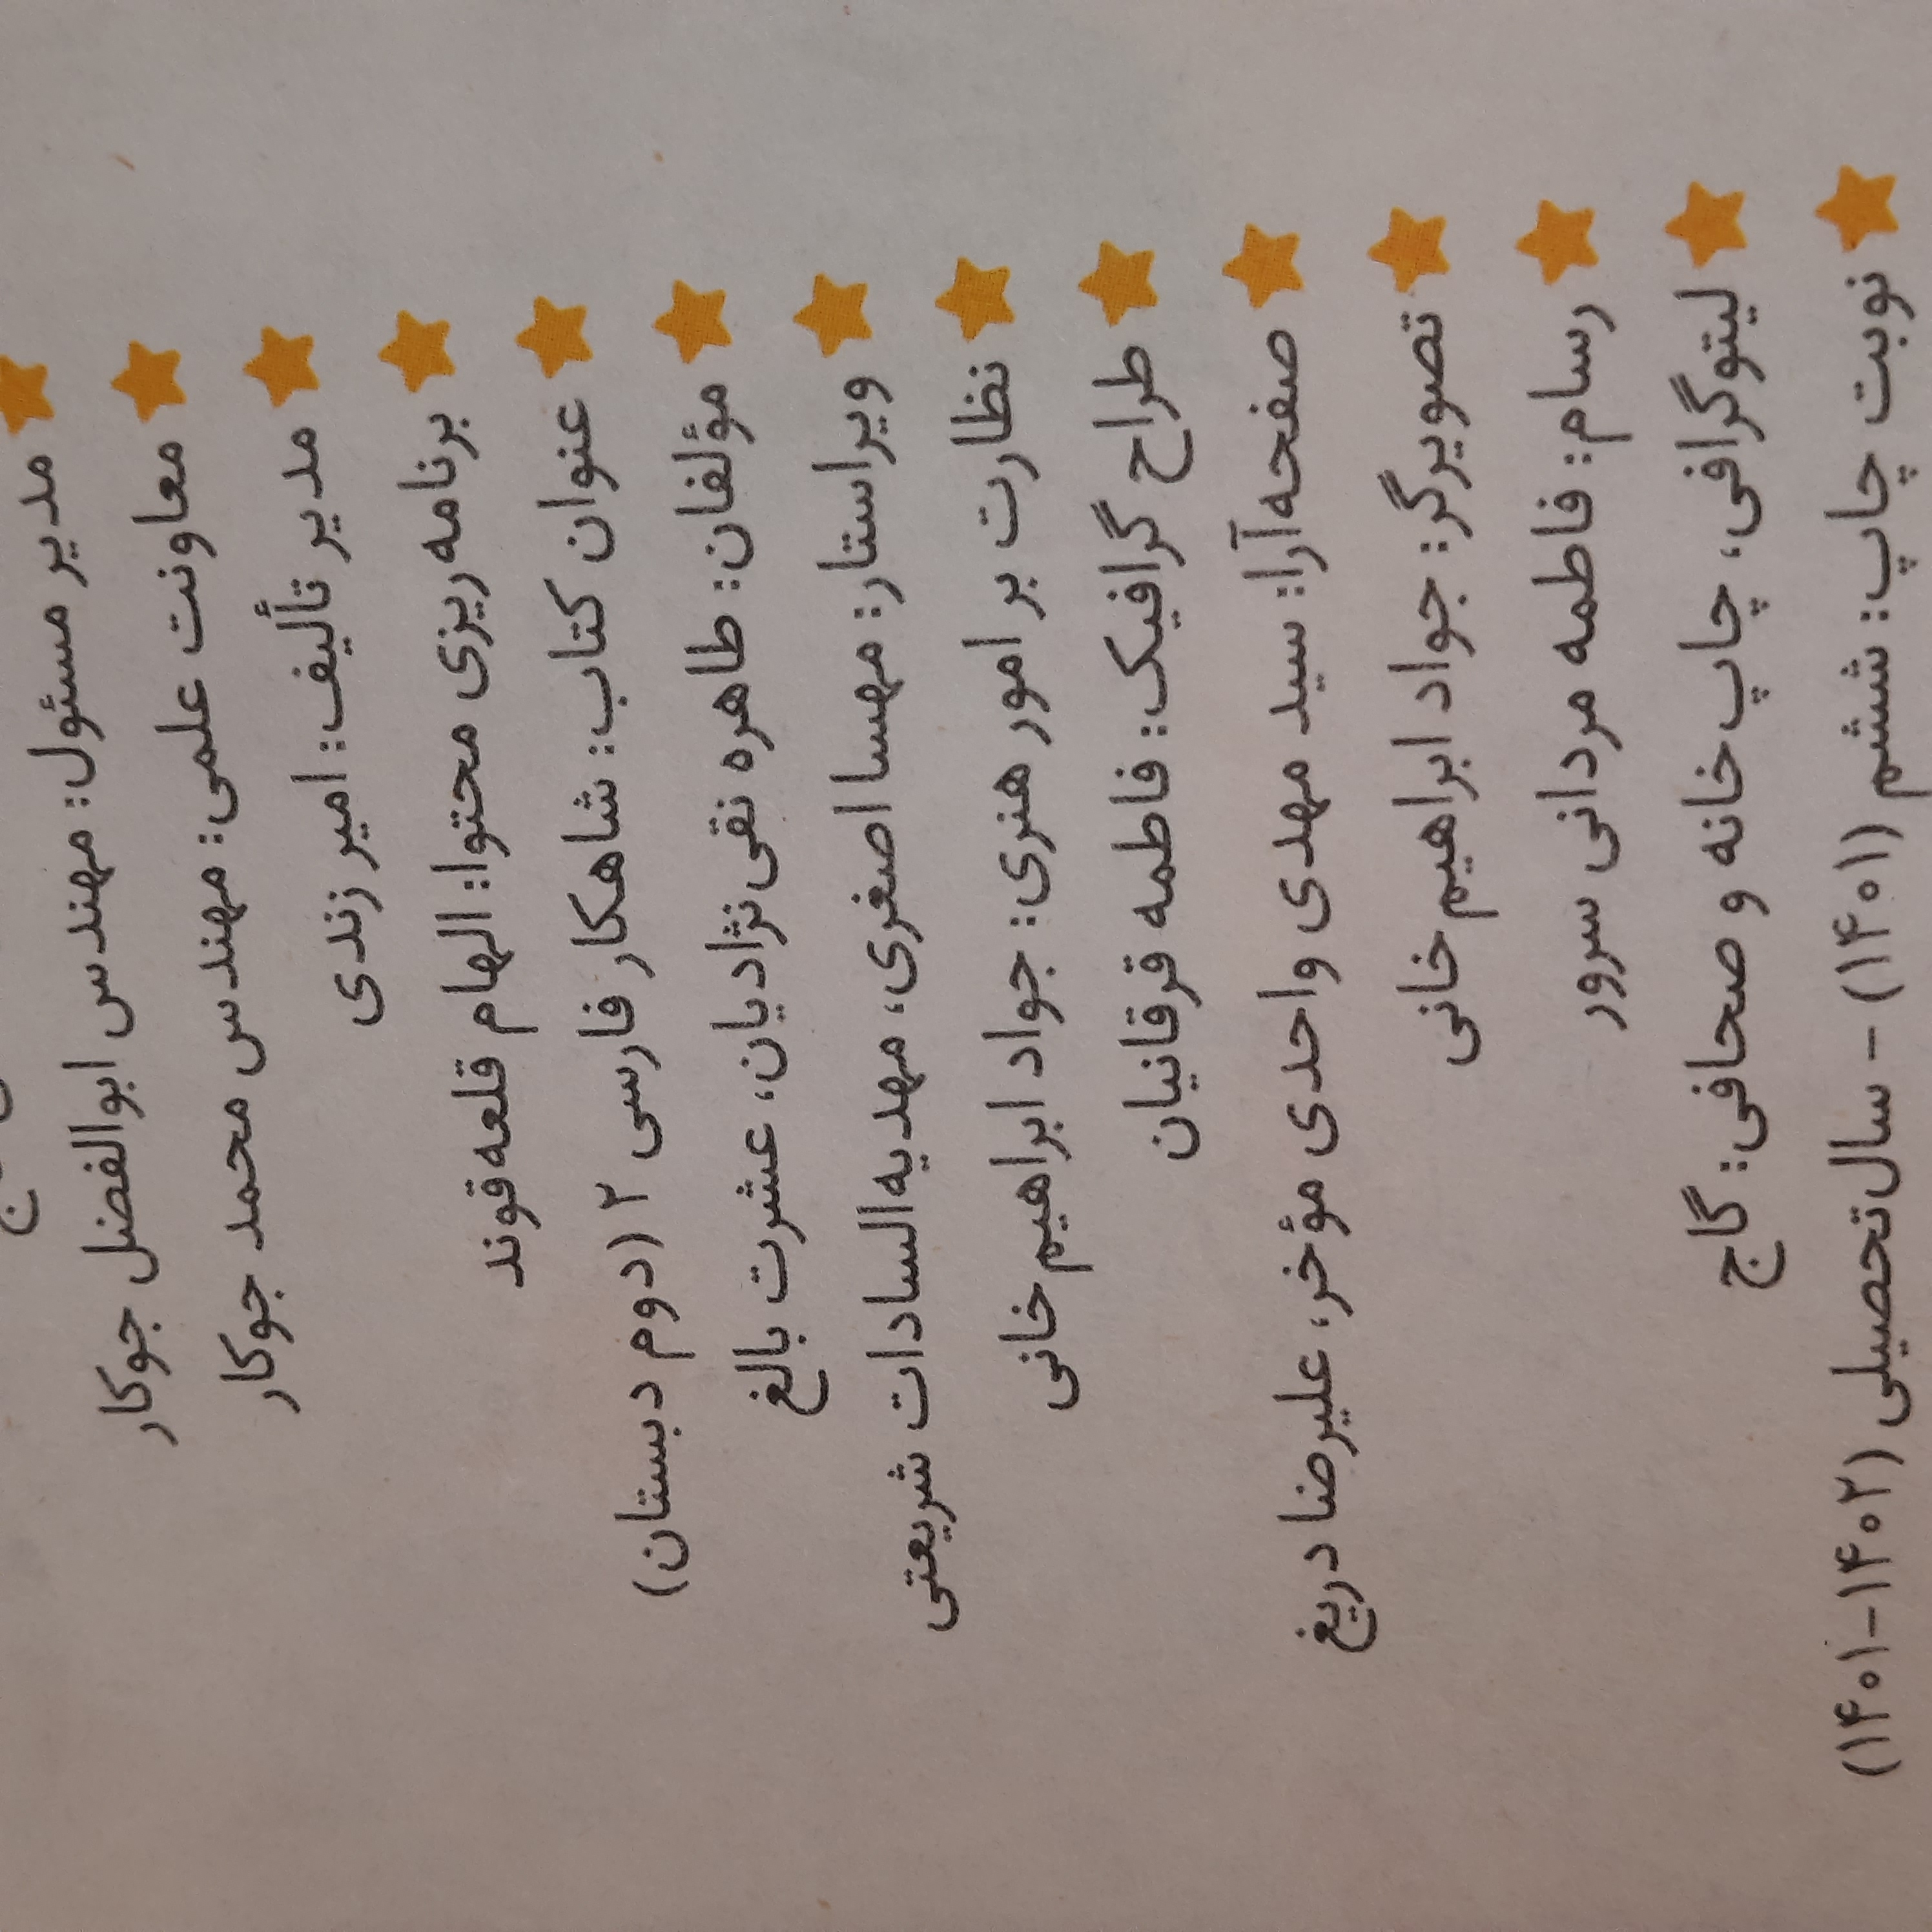 مدیر مسئول: مهندس ابوالفضل جوکار
معاونت علمی: مهندس محمد جوکار
مدیر تألیف: امیر زندی
برنامه‌ریزی محتوا: الهام قلعه‌قوند
عنوان کتاب: شاهکار فارسی ۲ (دوم دبستان)
مؤلفان: طاهره نقی‌نژادیان، عشرت بالغ
ویراستار: مهسا اصغری، مهدیه‌السادات شریعتی
نظارت بر امور هنری: جواد ابراهیم‌خانی
طراح گرافیک: فاطمه قرقانیان
صفحه‌آرا: سید مهدی واحدی مؤخر، علیرضا دریغ
تصویرگر: جواد ابراهیم‌خانی
رسام: فاطمه مردانی سرور
لیتوگرافی، چاپ‌خانه و صحافی: گاج
نوبت چاپ: ششم (۱۴۰۱) - سال‌تحصیلی (۱۴۰۲-۱۴۰۱)